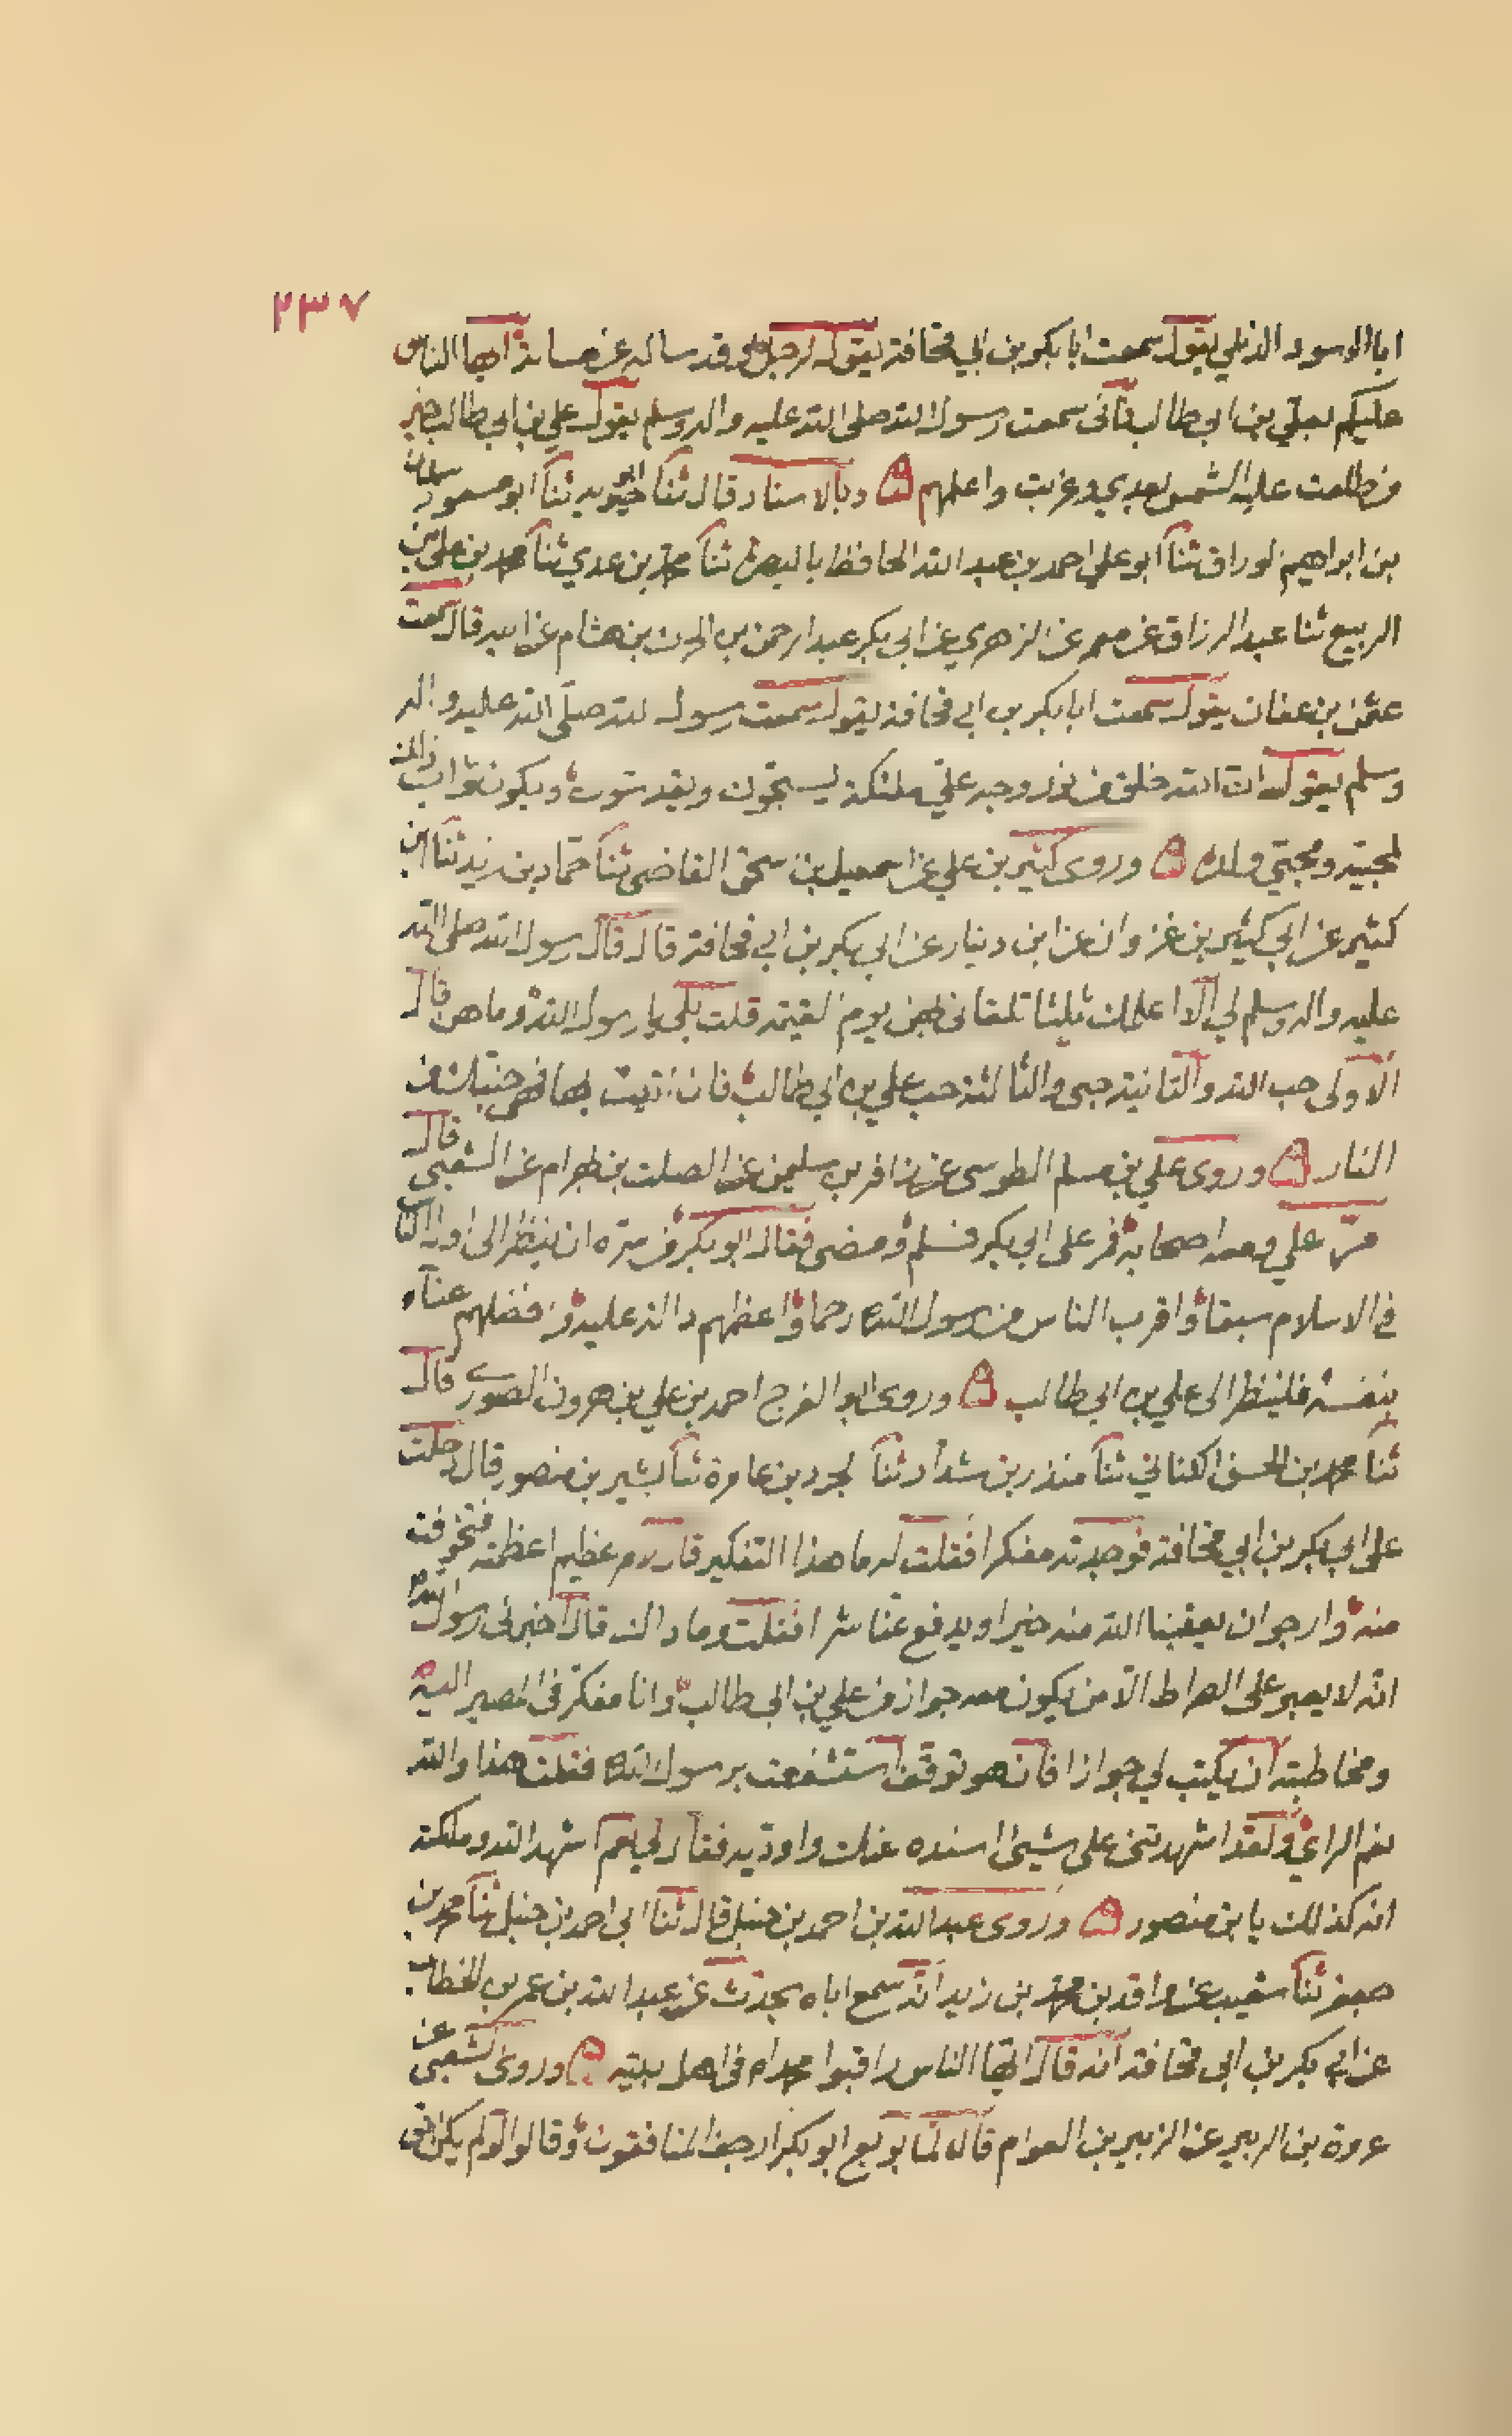 ٢٣٧
ابا الاسود الدئلي يقول سمعت ابا بكر بن ابي قحافة يقول لرجل وقد ساله عن مسائل ايها الناس
عليكم بعلي بن ابي طالب فاني سمعت رسول الله صلى الله عليه واله وسلم يقول علي بن ابي طالب خير
من طلعت عليه الشمس بعدي وغربت واعلمهم ۵ وبالاسناد قال ثنا ابو ثنا ابو مسعود سليمان
بن ابراهيم لوراق ثنا ابو علي احمد بن عبد الله الحافظ بالبصرة ثنا محمد بن عدي ثنا محمد بن علي بن
الربيع ثنا عبد الرزاق عن معمر عن الزهري عن ابي بكر عبد الرحمن بن الحرث بن هشام عن ابيه قال سمعت
عثمن بن عفان يقول سمعت ابا بكر بن ابي قحافة يقول سمعت رسول الله صلى الله عليه واله
وسلم يقول ان الله خلق من نور وجه علي ملئكة يسبحون ويقدسون ويكون ثواب ذالك
لمحبيه ومحبي ولده ۵ وروى كثير بن علي عن اسمعيل بن سحق القاضي ثنا حماد بن زيد ثنا ابن
كثير عن ابي كثير بن غزوان عن ابن دينار عن ابي بكر بن ابي قحافة قال قال رسول الله صلى الله
عليه واله وسلم لي الا اعلمك ثلثا تلقاني بهن يوم القيمة قلت بلى يا رسول الله وما هن قال
الاولى حب الله والثانية حبي والثالثة حب علي بن ابي طالب فان اتيت بها فهي جنتك من
النار ۵ وروى علي بن مسلم الطوسي عن زافر بن سليمن عن الصلت بن بهرام عن الشعبي قال
مر علي ومعه اصحابه فمر على ابي بكر فسلم ومضى فقال ابو بكر من سره ان ينظر الى اول الناس
في الاسلام سبقا واقرب الناس من رسول الله رحما واعظمهم دالة عليه وافضلهم عناء
بنفسه فلينظر الى علي بن ابي طالب ۵ وروى ابو الفرج احمد بن علي بن هرون الصوري قال
ثنا محمد بن الحسن الكناني ثنا منذر بن شداد ثنا بن عامرة ثنا بشير بن منصور قال دخلت
على ابي بكر بن ابي قحافة فوجدته مفكرا فقلت له ما هذا التفكير قال لامر عظيم اعظمته فتخوفت
منه وارجو ان يعقبنا الله منه خيرا ويدفع عنا شرا فقلت وما ذالك قال اخبرني رسول الله
انه لا يعبر على الصراط الا من يكون معه جواز من علي بن ابي طالب وانا مفكر في المصير اليه
ومخاطبته ان يكتب لي جوازا فان هو توقف استشفعت برسول الله فقلت هذا والله
نعم الراي ولقد اشهدتني على شيئ اسنده عنك واوديه فقال لي نعم اشهد الله وملئكته
انه كذلك يا بن منصور ۵ وروى عبد الله بن احمد بن حنبل قال ثنا ابي احمد بن حنبل ثنا محمد بن
جعفر ثنا شعبة عن واقد بن محمد بن زيد انه سمع اباه يحدث عن عبد الله بن عمر بن الخطاب
عن ابي بكر بن ابي قحافة انه قال ايها الناس راقبوا محمدا في اهل بيته ۵ وروى الشعبي عن
عروة بن الزبير عن الزبير بن العوام قال لما بويع ابو بكر ارجف المنافقون وقالوا لم يكن في